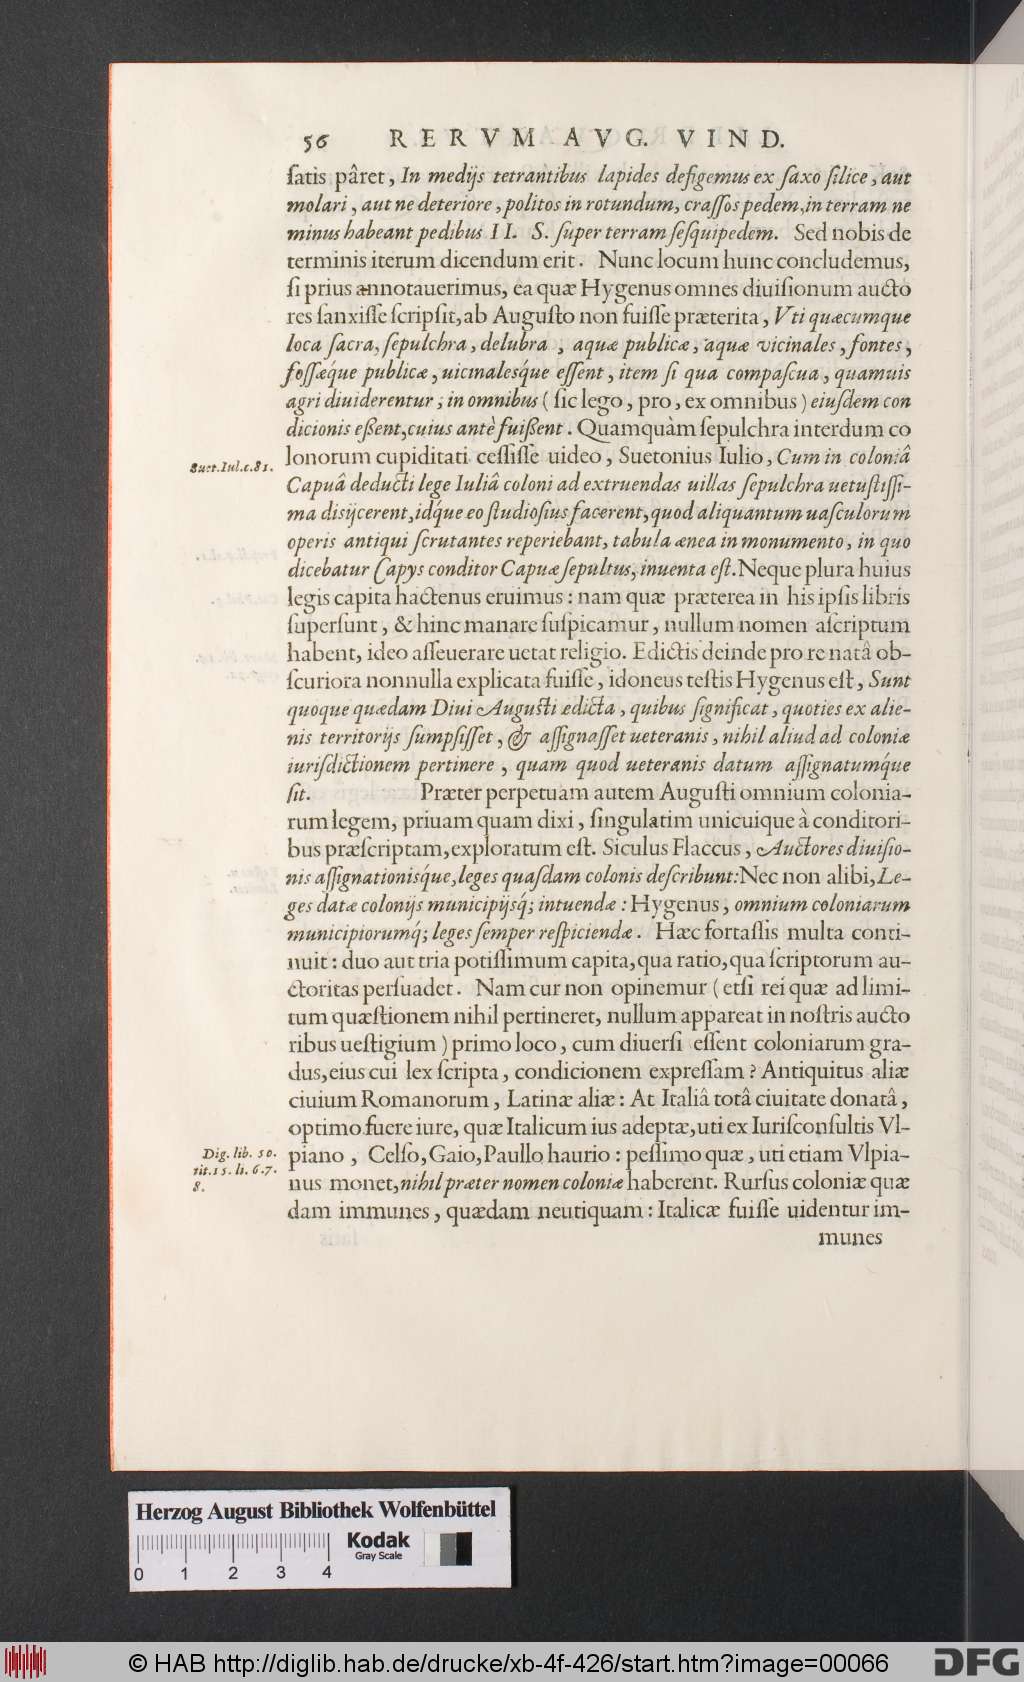 56 RERVM AVG. VIND.
ſatis pâret, In medijs tetrantibus lapides defigemus ex ſaxo ſilice, aut
molari, aut ne deteriore, politos in rotundum, craſſos pedem, in terram ne
minus habeant pedibus II. S. ſuper terram ſeſquipedem. Sed nobis de
terminis iterum dicendum erit. Nunc locum hunc concludemus,
ſi prius annotauerimus, ea quæ Hygenus omnes diuiſionum aucto
res ſanxiſſe ſcripſit, ab Auguſto non fuiſſe præterita, Vti quæcumque
loca ſacra, ſepulchra, delubra, aquæ publicæ, aquæ vicinales, fontes,
foſſæq́ue publicæ, uicinalesq́ue eſſent, item ſi qua compaſcua, quamuis
agri diuiderentur, in omnibus (ſic lego, pro, ex omnibus) eiuſdem con
dicionis eßent, cuius antè fuißent. Quamquàm ſepulchra interdum co
Suet. Iul. c. 81.
lonorum cupiditati ceſſiſſe uideo, Suetonius Iulio, Cum in coloniâ
Capuâ deducti lege Iuliâ coloni ad extruendas uillas ſepulchra uetuſtiſſi-
ma disijcerent, idq́ue eo ſtudioſius facerent, quod aliquantum uaſculorum
operis antiqui ſcrutantes reperiebant, tabula ænea in monumento, in quo
dicebatur Capys conditor Capuæ ſepultus, inuenta eſt. Neque plura huius
legis capita hactenus eruimus: nam quæ præterea in his ipſis libris
ſuperſunt, & hinc manare ſuſpicamur, nullum nomen aſcriptum
habent, ideo aſſeuerare uetat religio. Edictis deinde pro re natâ ob-
ſcuriora nonnulla explicata fuiſſe, idoneus teſtis Hygenus eſt, Sunt
quoque quædam Diui Auguſti edicta, quibus ſignificat, quoties ex alie-
nis territorijs ſumpſiſſet, & aſſignaſſet ueteranis, nihil aliud ad coloniæ
iuriſdictionem pertinere, quam quod ueteranis datum aſſignatumq́ue
ſit. Præter perpetuam autem Auguſti omnium colonia-
rum legem, priuam quam dixi, ſingulatim unicuique à conditori-
bus præſcriptam, exploratum eſt. Siculus Flaccus, Auctores diuiſio-
nis aſſignationisq́ue, leges quaſdam colonis deſcribunt: Nec non alibi, Le-
ges datæ colonijs municipijsq́; intuendæ: Hygenus, omnium coloniarum
municipiorumq́; leges ſemper reſpiciendæ. Hæc fortaſſis multa conti-
nuit: duo aut tria potiſſimum capita, qua ratio, qua ſcriptorum au-
ctoritas perſuadet. Nam cur non opinemur (etſi rei quæ ad limi-
tum quæſtionem nihil pertineret, nullum appareat in noſtris aucto
ribus ueſtigium) primo loco, cum diuerſi eſſent coloniarum gra-
dus, eius cui lex ſcripta, condicionem expreſſam? Antiquitus aliæ
ciuium Romanorum, Latinæ aliæ: At Italiâ totâ ciuitate donatâ,
optimo fuere iure, quæ Italicum ius adeptæ, uti ex Iuriſconſultis Vl-
Dig. lib. 50.
tit. 15. li. 6. 7.
8.
piano, Celſo, Gaio, Paullo haurio: peſſimo quæ, uti etiam Vlpia-
nus monet, nihil præter nomen coloniæ haberent. Rurſus coloniæ quæ
dam immunes, quædam neutiquam: Italicæ fuiſſe uidentur im-
munes
Herzog August Bibliothek Wolfenbüttel
Kodak
Gray Scale
0 1 2 3 4
© HAB http://diglib.hab.de/drucke/xb-4f-426/start.htm?image=00066
DFG